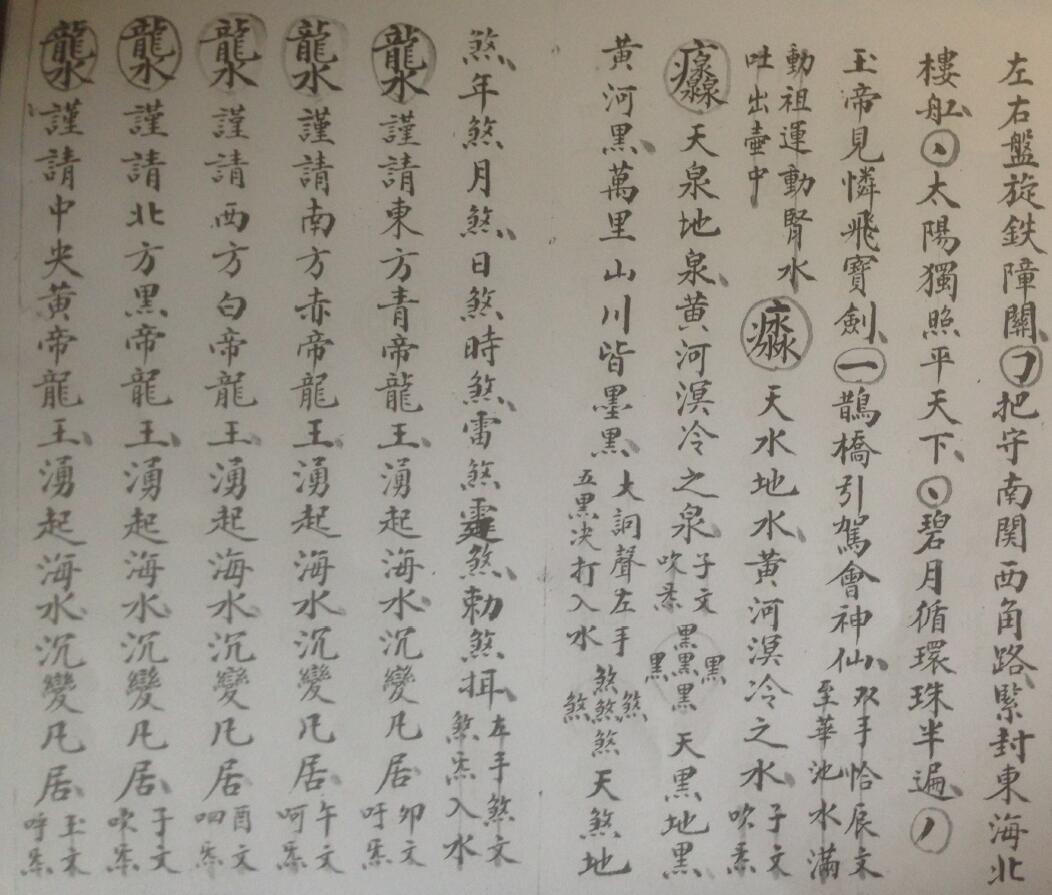 左右盤旋鉄障關㇆把守南関西角路緊封東海北
樓舡丶太陽獨照平天下丶碧月循環珠半遍丿
玉帝見憐飛寶劍一鵲橋引駕會神仙双手恰辰文
至華池水滿
動祖運動腎水
吐出壺中
天水地水黄河溟冷之水子文
吹炁
天泉地泉黄河溟冷之泉子文
吹炁
黑黑黑黑黑天黑地黑
黄河黑萬里山川皆墨黑大訶聲左手
五黑决打入水
煞煞煞煞煞天煞地
煞年煞月煞日煞時煞雷煞霆煞勅煞揖左手煞文
煞炁入水
謹請東方青帝龍王湧起海水沉變凡居卯文
吁炁
謹請南方赤帝龍王湧起海水沉變凡居午文
呵炁
謹請西方白帝龍王湧起海水沉變凡居酉文
呬炁
謹請北方黑帝龍王湧起海水沉變凡居子文
吹炁
謹請中央黄帝龍王湧起海水沉變凡居玉文
呼炁